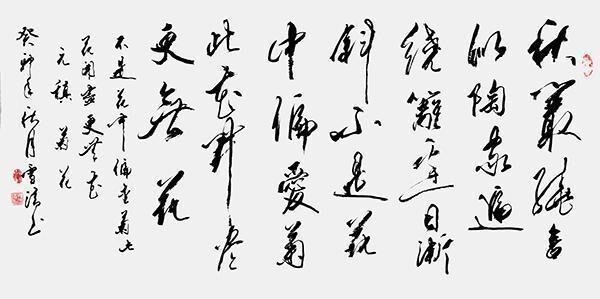 秋叢繞舍
似陶家遍
繞籬邊日漸
斜不是花
中偏愛菊
此花開盡
更無花
不是花中偏愛菊此
花開盡更無花
元稹 菊花
癸卯年秋月雪書